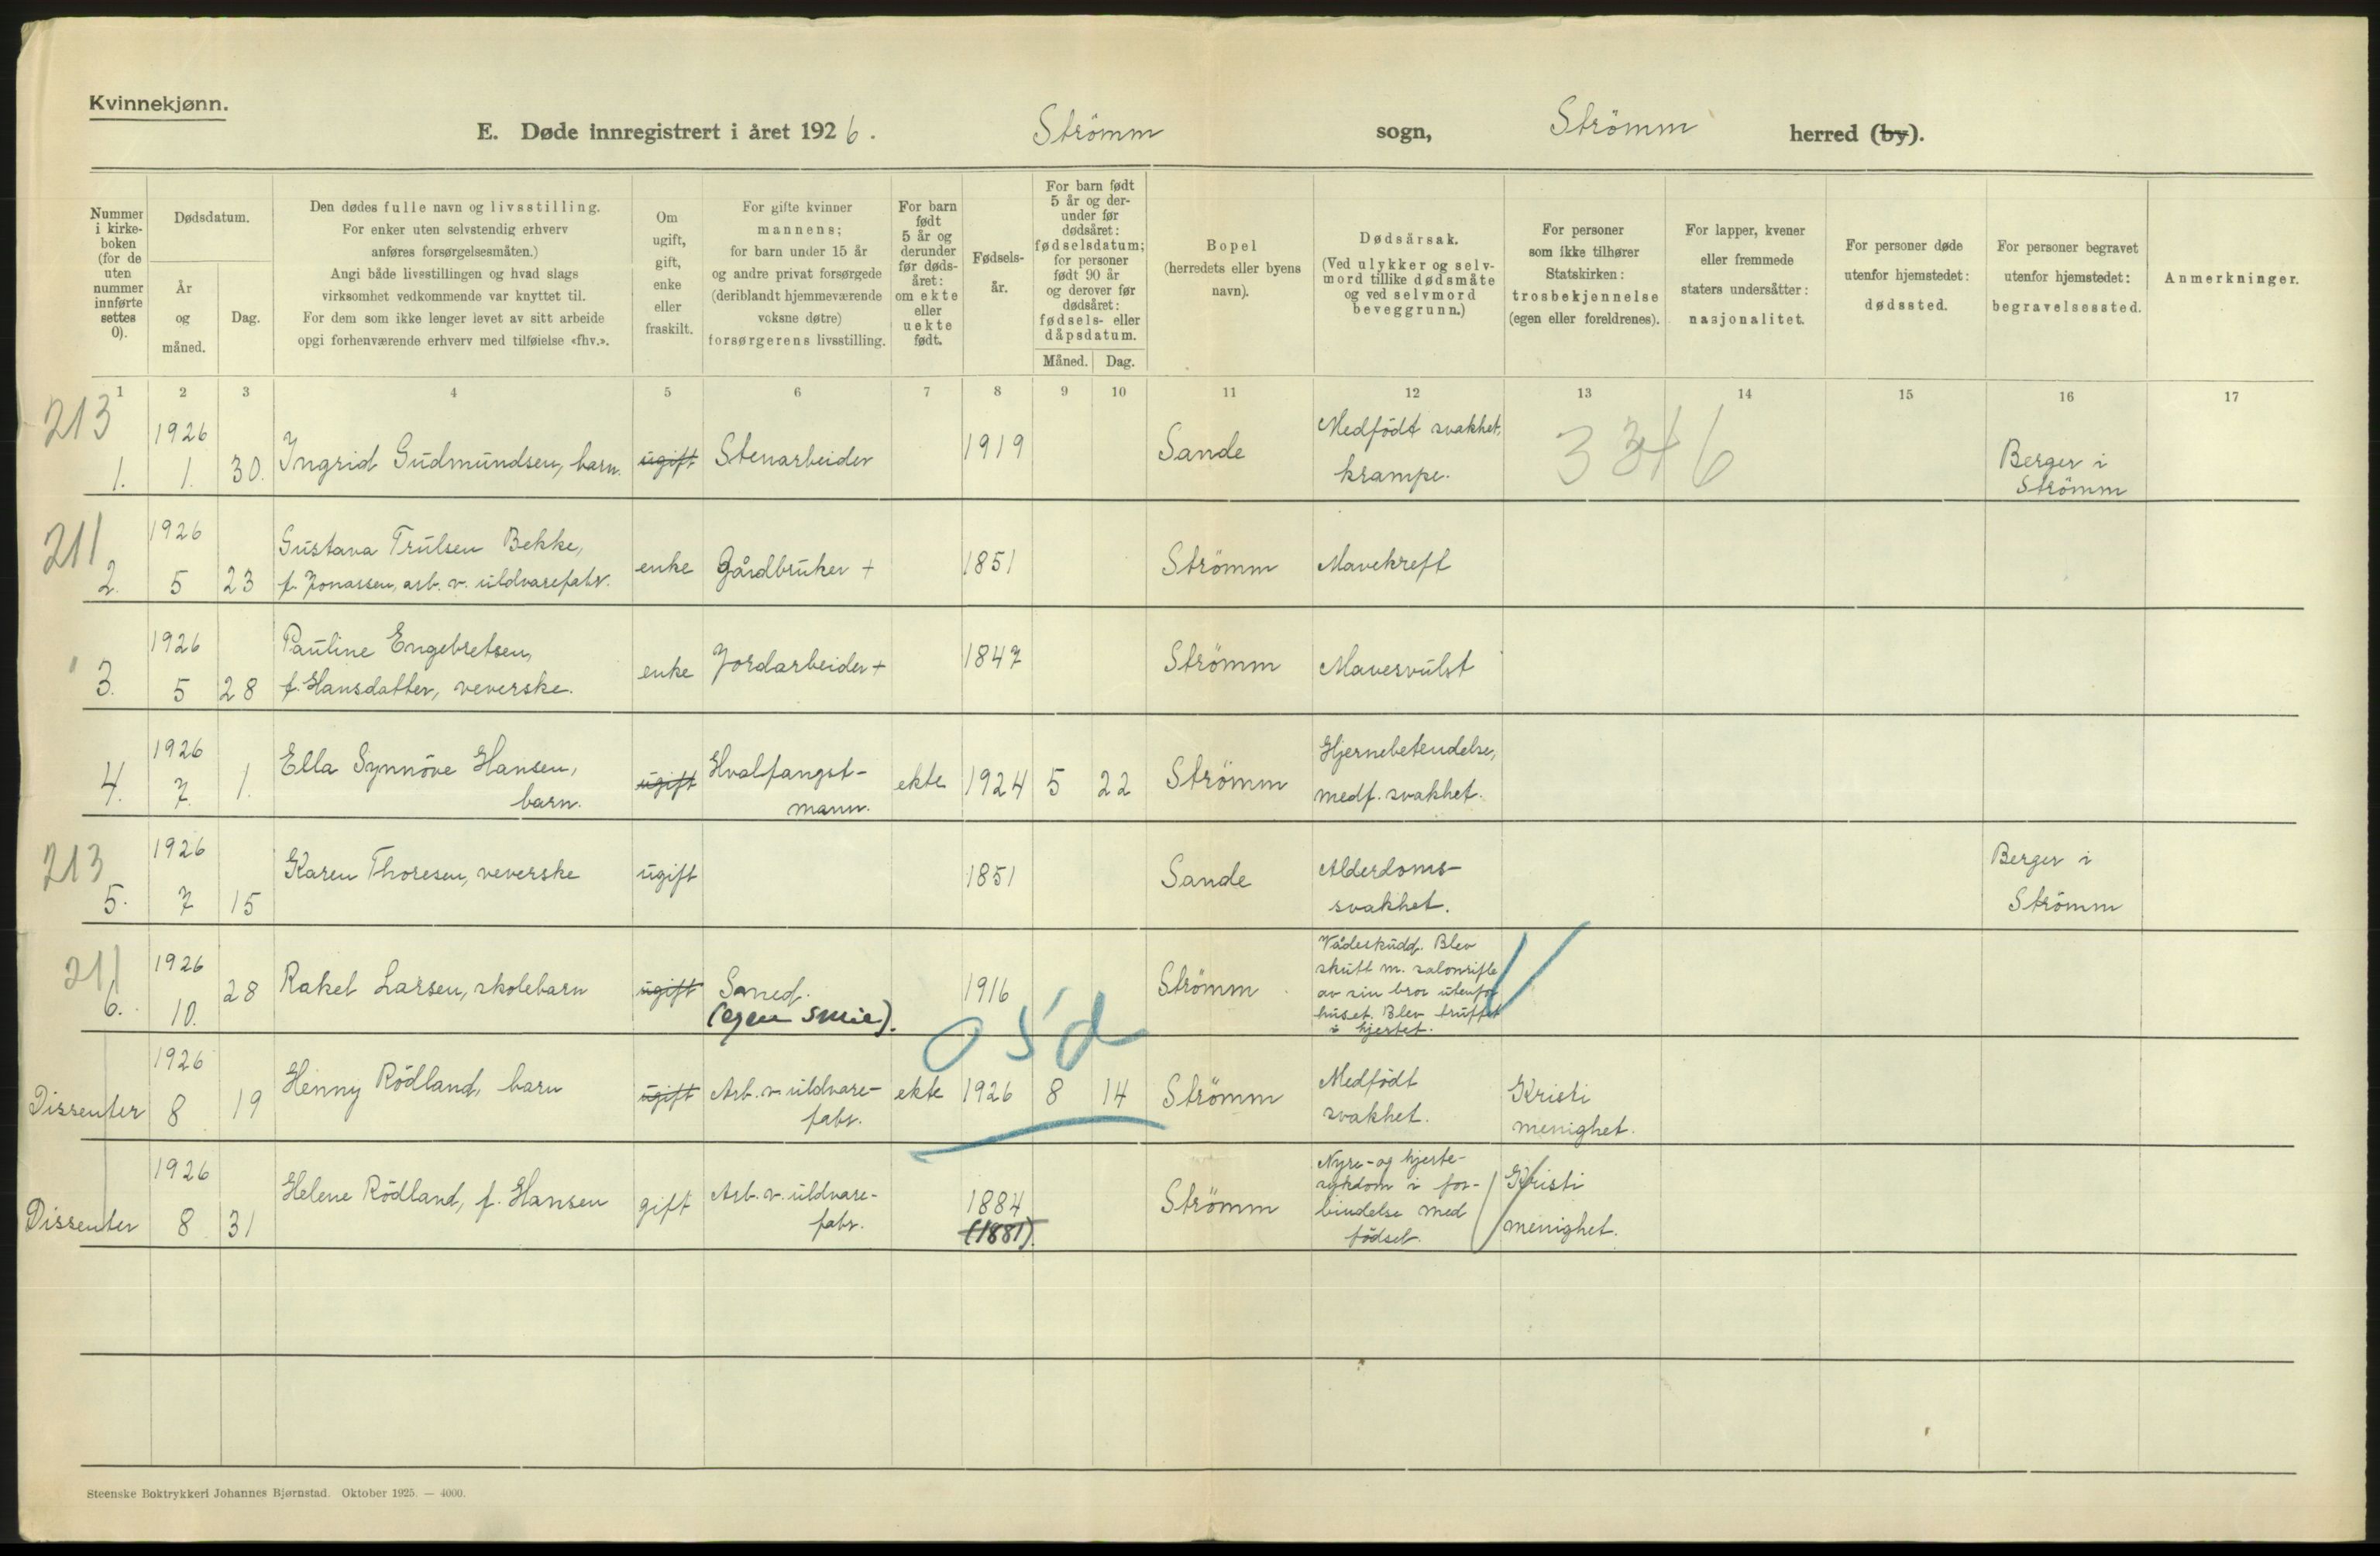 Kvinnekjønn.
E. Døde innregistrert i året 1926. Strömm sogn, Strömm herred (by).
Nummer i kirke-boken (for de uten nummer innførte settes 0).
Dødsdatum.
År og måned.
Dag.
Den dødes fulle navn og livsstilling.
For enker uten selvstendig erhverv
anføres forsørgelsesmåten.)
Angi både livestillingen og hvad slags
virksomhet vedkommende var knyttet til.
For dem som ikke lenger levet av sitt arbeide
opgi forhenværende erhverv med tilføielse «fhv.».
Om ugift, gift, enke eller fraskilt.
For gifte kvinner
mannens;
for barn under 15 år
og andre privat forsørgede
(deriblandt hjemmeværende
voksne døtre)
forsørgerens livsstilling.
For barn født 5 år og derunder før døds-året: om ekte eller uekte født.
Fødsels-år.
For barn født 5 år og der-under før dødsåret: fødselsdatum; for personer født 90 år og derover før dødsåret: fødsels- eller dåpsdatum.
Måned. Dag.
Bopel
(herredets eller byens
navn).
Dødsårsak.
(Ved ulykker og selv-
mord tillike dødsmåte
og ved selvmord
beveggrunn.)
For personer
som ikke tilhører
Statskirken:
trosbekjennelse
(egen eller foreldrenes).
For lapper, kvener
eller fremmede
staters undersåtter:
nasjonalitet.
For personer døde
utenfor hjemstedet:
dødssted.
For personer begravet
utenfor hjemstedet:
begravelsessted.
Anmerkninger.
1 2 3 4 5 6 7 8 9 10 11 12 13 14 15 16 17
213
1. 1926 1. 30. Ingrid Gudmundsen, barn. ugift Stenarbeider 1919 Sande Medfödt svakhet, krampe. Berger i Strömm
211
2. 1926 5 23 Gustava Trulsen Bekke, f. Jonassen, arb. v. uldvarefabr. enke Gårdbruker + 1851 Strömm Mavekreft
" 3. 1926 5 28 Pauline Engebretsen, f. Hansdatter, veverske. enke Jordarbeider + 1847 Strömm Mavesvulst
4. 1926 7. 1. Ella Synnöve Hansen, barn. ugift Hvalfangst-mann. ekte 1924 5 22 Strömm Hjernebetendelse, medf. svakhet.
213
5. 1926 7 15 Karen Thoresen, veverske ugift 1851 Sande Alderdoms-svakhet. Berger i Strömm
211
6. 1926 10. 28 Rakel Larsen, skolebarn ugift Smed. (egen smie). 1916 Strömm Vådeskudd. Blev skutt m. salonrifle av sin bror utenfor huset. Blev truffet i hjertet.
Dissenter 1926 8 19 Henny Rödland, barn ugift Arb. v. uldvare-fabr. ekte 1926 8 14 Strömm Medfödt svakhet. Kristi menighet.
Dissenter 1926 8 31 Helene Rödland, f. Hansen gift Arb. v. uldvare-fabr. 1884 (1881). Strömm Nyre- og hjerte-sykdom i for-bindelse med födsel. Kristi menighet.
Steenske Boktrykkeri Johannes Bjørnstad. Oktober 1925. — 4000.